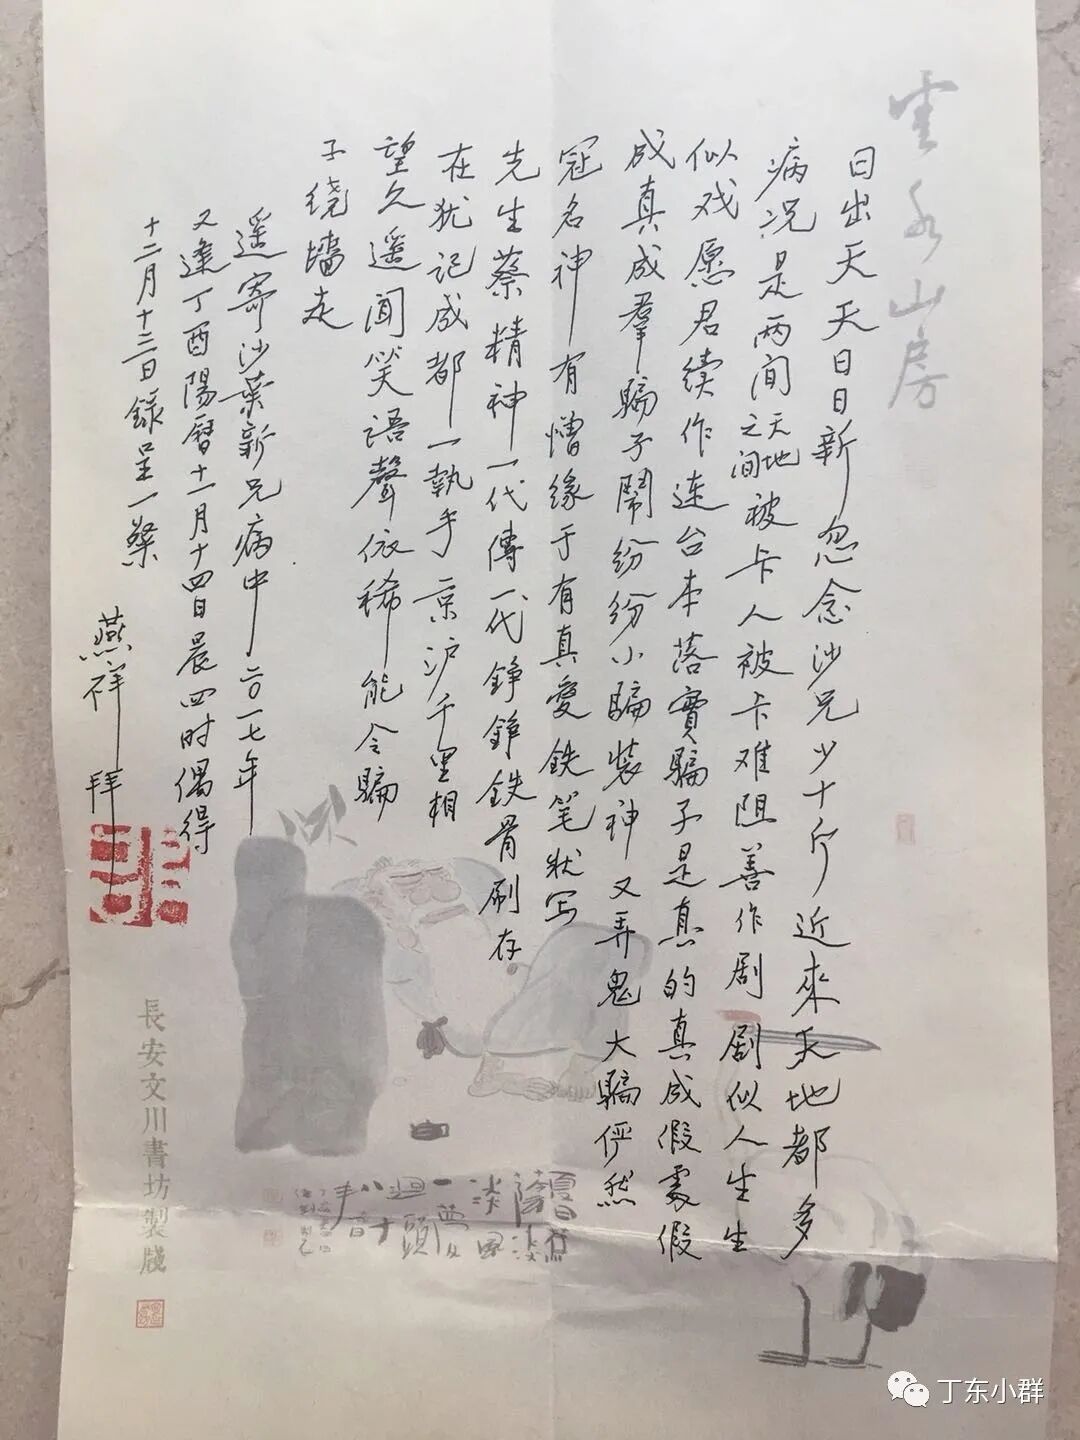 雲水山房
日出天天日日新忽念沙兄少十斤近來天地都多
病况是两间天地之间被卡人被卡难阻善作剧剧似人生生
似戏愿君续作连台本落實騙子是真的真成假處假
成真成羣騙子鬧纷纷小騙装神又弄鬼大騙俨然
冠名神有憎缘于有真愛鉄笔状写
先生蔡精神一代傳一代铮铮鉄骨刷存
在犹记成都一執手京沪千里相
望久遥闻笑語聲依稀能令騙
子绕墙走
遥寄沙葉新兄病中二〇一七年
又逢丁酉陽曆十一月十四日晨四时偶得
十二月十三日錄呈一粲
燕祥拜
長安文川書坊製牋
丁东小群